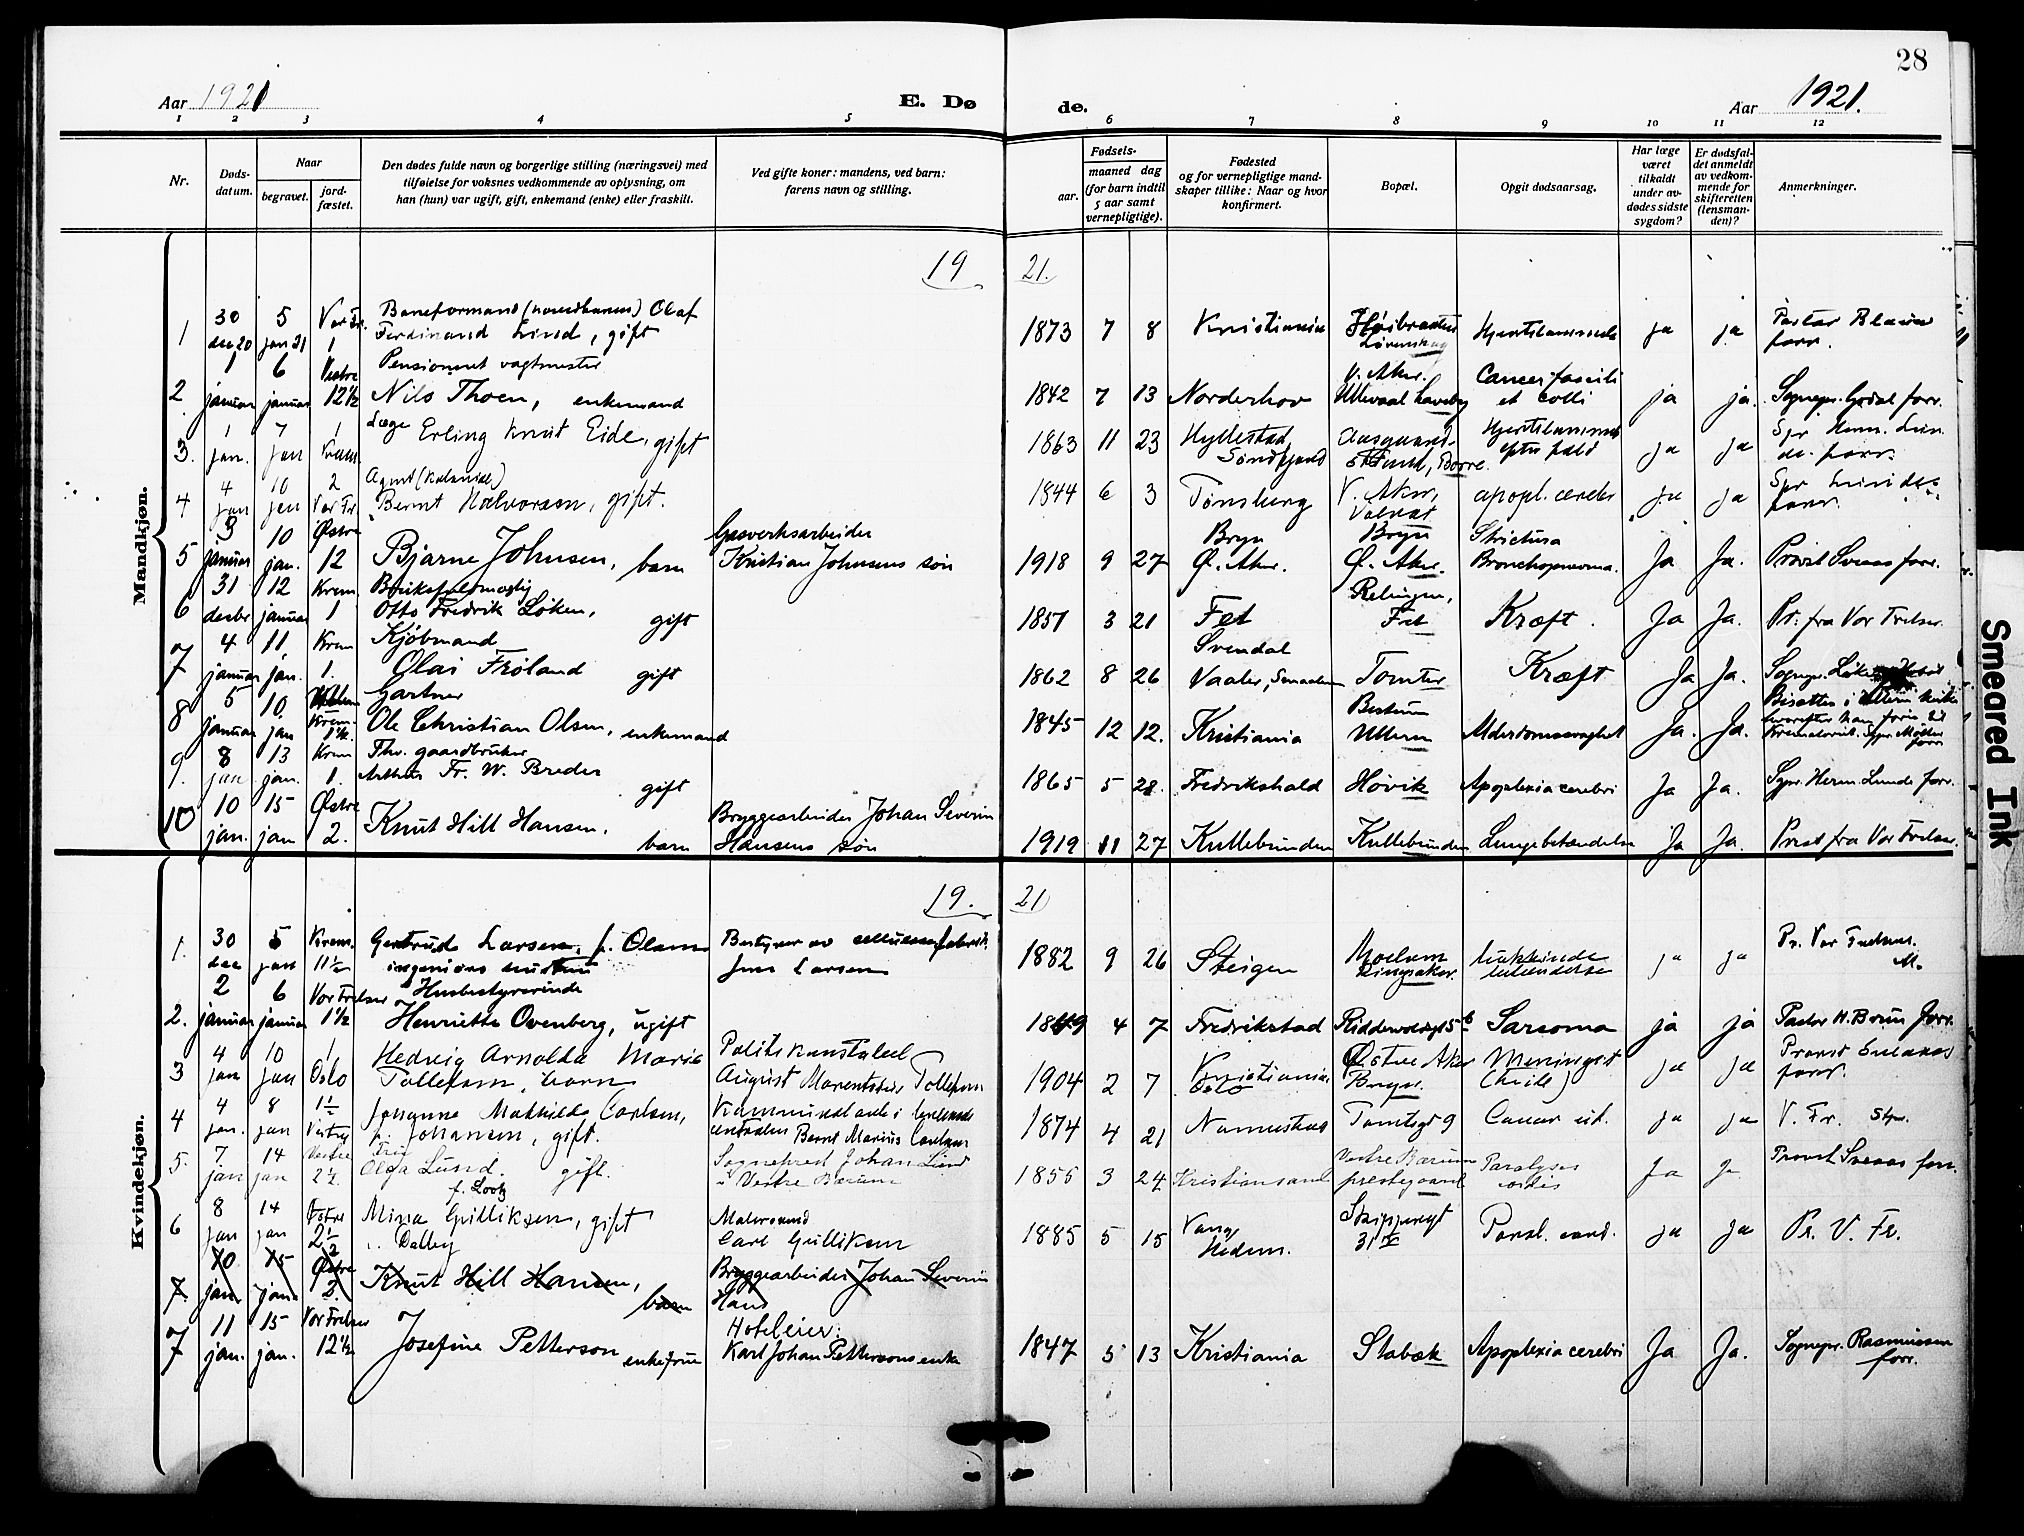 28
Aar 1921
E. Dø
de.
Aar 1921.
1 2 3 4 5 6 7 8 9 10 11 12
Nr.
Døds-
datum.
Naar
begravet.
jord-
fæstet.
Den dødes fulde navn og borgerlige stilling (næringsvei) med
tilføielse for voksnes vedkommende av oplysning, om
han (hun) var ugift, gift, enkemand (enke) eller fraskilt.
Ved gifte koner: mandens, ved barn:
farens navn og stilling.
Fødsels-
aar.
maaned dag
(for barn indtil
5 aar samt
vernepligtige).
Fødested
og for vernepligtige mand-
skaper tillike: Naar og hvor
konfirmert.
Bopæl.
Opgit dødsaarsag.
Har læge
været
tilkaldt
under av-
dødes sidste
sygdom?
Er dødsfal-
det anmeldt
av vedkom-
mende for
skifteretten
(lensman-
den)?
Anmerkninger.
Mandkjøn.
19 21.
30 5 Vor Fr. Baneformand Olaf
1 dec 20 jan 21 1 Ferdinand Lind, gift 1873 7 8 Kristiania ja ja Pastor
forr.
1 6 Vestre Pensioneret vagtmester V. Aker.
2. januar januar 12½ Nils Thoen, enkemand 1842 7 13 Norderhov Ullevaal et colli ja ja. Sognepr. forr.
1 7 1 Læge Erling Knut Eide, gift
3. jan. jan Krem. 1863 11 23 Hyllestad Borre ja ja
4 10 2 Agent
4 jan jan Vor Fr. Bernt Halvorsen, gift. 1844 6 3 Tønsberg V. Aker, apopl. cerebr ja ja
forr.
3 10 Østre Gasverksarbeider Bryn Bryn
5 januar jan. 12 Bjarne Johnsen, barn Kristian Johnsens søn 1918 9 27 Ø. Aker. Ø. Aker. Bronchopneumo. Ja Ja. Provst Sveaas forr.
31 12 Krem Relingen,
6 desbr januar 1 Otto Fredrik Løken, gift 1857 3 21 Fet Fet Kræft. Ja Ja. Pr. fra Vor Frelser.
4 11. Krem Kjøbmand Svendal
7 januar jan. 1. Olai Frøland gift 1862 8 26 Vaaler, Tomter Kræft Ja Ja. Sognepr.
5 10 Ullern Gartner Bestum Bisattes i Ullern kirke
8 januar jan Krem. 1½. Ole Christian Olsen, enkemand 1845 12 12. Kristiania Ullern Alderdomssvaghet Ja. Ja. forr
8 13 Krem Fhv. gaardbruker
9. jan jan. 1. Fr. W. Breder gift 1865 5 28. Fredrikshald Høvik Apoplexia cerebri Ja Ja. Sgpr. Herm. Lunde forr.
10 15 Østre Bryggearbeider Johan Severin
10 jan. jan 2. Knut Hill Hansen, barn Hansens søn 1919 11 27 Kullebunden Kullebunden Lungebetændelse Ja Ja. Prest fra Vor Frelser.
Kvindekjøn.
19. 21
30 5 Krem. Gertrude Larsen, f. Olsen Bestyrer av cellulosefabrik
1. dec jan 11½ ingeniørs hustru Jens Larsen 1882 9 26 Steigen Moelven Ringsaker. ja ja Pr. Vor Frelsers.
2 6 Vor Frelser Husbestyrerinde
2. januar januar 1½ Henriette Ovenberg, ugift 1849 4 7 Fredrikstad Sarcoma ja ja Pastor H. Brun forr.
4 10 1 Hedvig Arnolda Marie Politikonstabel Østre Aker
3 jan jan Oslo Tollefsen, barn August Tollefsen 1904 2 7 Kristiania Oslo Bryn. ja ja Provst Sveaas
forr.
4 8 1½ Johanne Mathilde Carlsen,
4 jan. jan Vestre f. Johansen, gift. Bernt Marius Carlsen 1874 4 21 Tomtegt 9 Cancer ut. ja ja V. Fr. Sgpr.
7 14 Vestre Fru Sogneprest Johan Lund Vestre Bærum
5. jan jan 2½. Olga Lund. gift. i Vestre Bærum 1856 3 24 Kristiansand prestegaard Paralysis cordis Ja Ja Provst Sveaas forr.
f. Lootz
8 14 Vestre Mina Gulliksen, gift Malersvend
6 jan jan 2½ Dalby Carl Gulliksen 1885 5 15 Vang Hedem. Skippergt 31 ja ja Pr. V. Fr.
10 15 Østre Bryggearbeider Johan Severin
7. jan. jan. 2. Knut Hill Hansen, barn Hans
11 15 Vor Frelser Hoteleier.
7 jan. jan. 12½ Josefine Petterson enkefrue Karl Johan Pettersons enke 1847 5 13 Kristiania Stabæk Apoplexia cerebri Ja Ja. Sognepr. Rasmussen
forr.
Smeared Ink